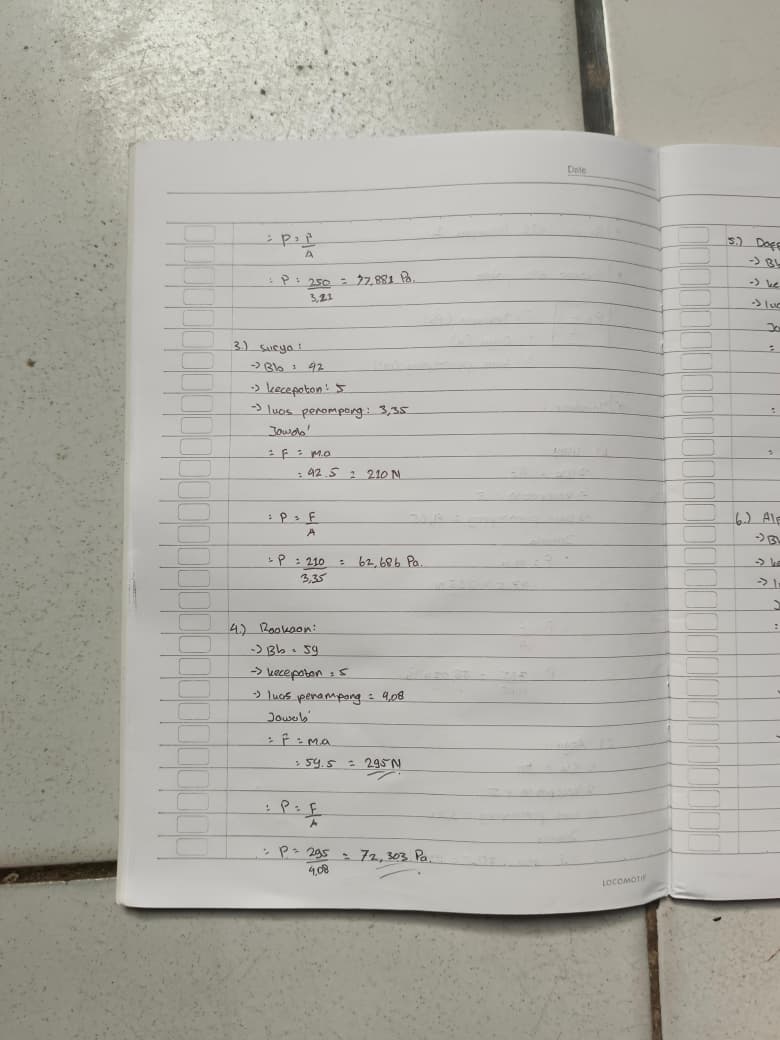 Date
: P = F
A
: P = 250 = 77,881 Pa.
3,21
3.) Surya :
-> Bb : 42
-> kecepatan : 5
-> luas penampang : 3,35
Jawab'
= F = m.a
: 42.5 = 210 N
: P = F
A
:- P = 210 = 62,686 Pa.
3,35
4.)
-> Bb = 59
-> kecepatan = 5
-> luas penampang = 4,08
Jawab'
= F = m.a
: 59.5 = 295 N
: P = F
A
: P = 295 = 72,303 Pa.
4,08
LOCOMOTIF
5.) Daff
-> Bb
-> ke
-> lua
Ja
=
:
:
6.) Alf
-> B
-> k
-> l
J
: